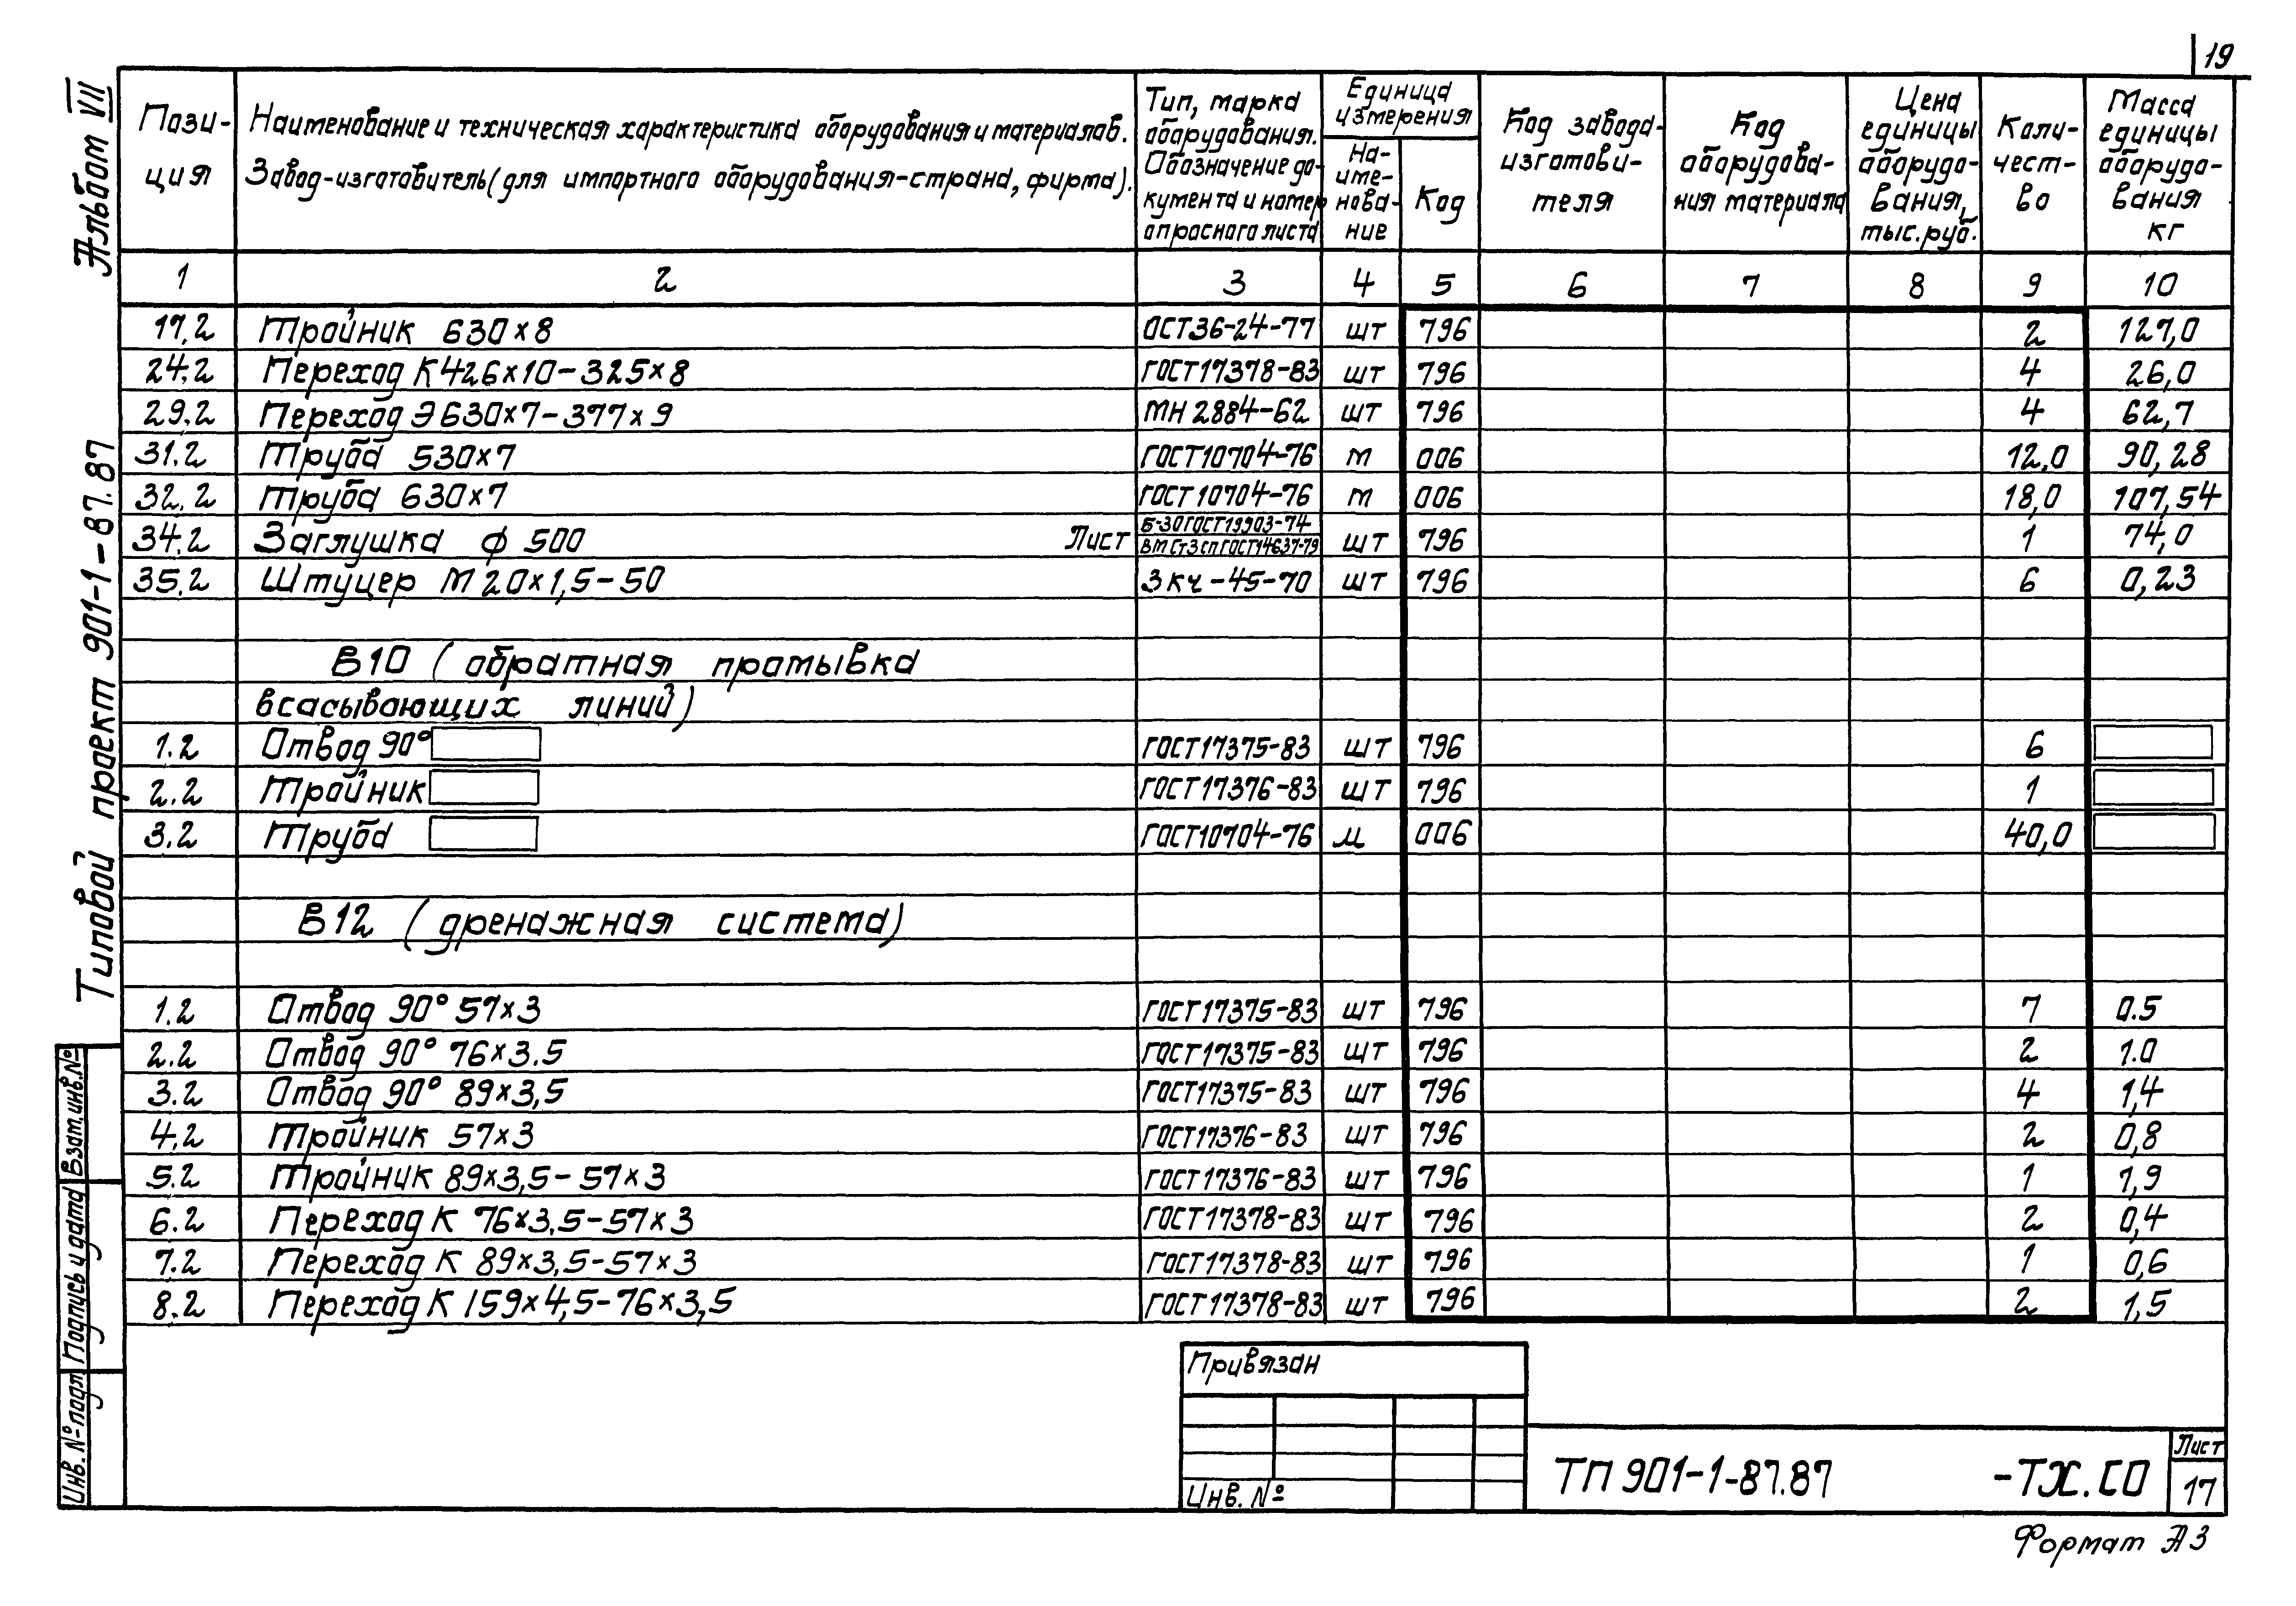 19
Альбом VII
Типовой проект 901-1-87.87
Взам.инв.№
Подпись и дата
Инв. № подл
Пози-
ция
Наименование и техническая характеристика оборудования и материалов.
Завод-изготовитель (для импортного оборудования-страна, фирма).
Тип, марка
оборудования.
Обозначение до-
кумента и номер
опросного листа
Единица
измерения
На-
име-
нова-
ние
Код
Код завода-
изготови-
теля
Код
оборудова-
ния материала
Цена
единицы
оборудо-
вания,
тыс.руб.
Коли-
чест-
во
Масса
единицы
оборудо-
вания
кг
1 2 3 4 5 6 7 8 9 10
17.2 Тройник 630×8 ОСТ36-24-77 шт 796 2 127,0
24.2 Переход К426×10-325×8 ГОСТ17378-83 шт 796 4 26,0
29.2 Переход Э630×7-377×9 МН 2884-62 шт 796 4 62,7
31.2 Труба 530×7 ГОСТ10704-76 м 006 12,0 90,28
32.2 Труба 630×7 ГОСТ10704-76 м 006 18,0 107,54
34.2 Заглушка ф 500 Лист Б-30ГОСТ19903-74 шт 796 1 74,0
ВМСт3спГОСТ14637-79
35.2 Штуцер М20×1,5-50 3кч-45-70 шт 796 6 0,23
В10 (обратная промывка
всасывающих линий)
1.2 Отвод 90° ГОСТ17375-83 шт 796 6
2.2 Тройник ГОСТ17376-83 шт 796 1
3.2 Труба ГОСТ10704-76 м 006 40,0
В12 (дренажная система)
1.2 Отвод 90° 57×3 ГОСТ17375-83 шт 796 7 0.5
2.2 Отвод 90° 76×3.5 ГОСТ17375-83 шт 796 2 1.0
3.2 Отвод 90° 89×3,5 ГОСТ17375-83 шт 796 4 1,4
4.2 Тройник 57×3 ГОСТ17376-83 шт 796 2 0,8
5.2 Тройник 89×3,5-57×3 ГОСТ17376-83 шт 796 1 1,9
6.2 Переход К 76×3,5-57×3 ГОСТ17378-83 шт 796 2 0,4
7.2 Переход К 89×3,5-57×3 ГОСТ17378-83 шт 796 1 0,6
8.2 Переход К 159×4,5-76×3,5 ГОСТ17378-83 шт 796 2 1,5
Привязан
Инв. №
ТП 901-1-87.87 -ТХ.СО
Лист
17
Формат А3